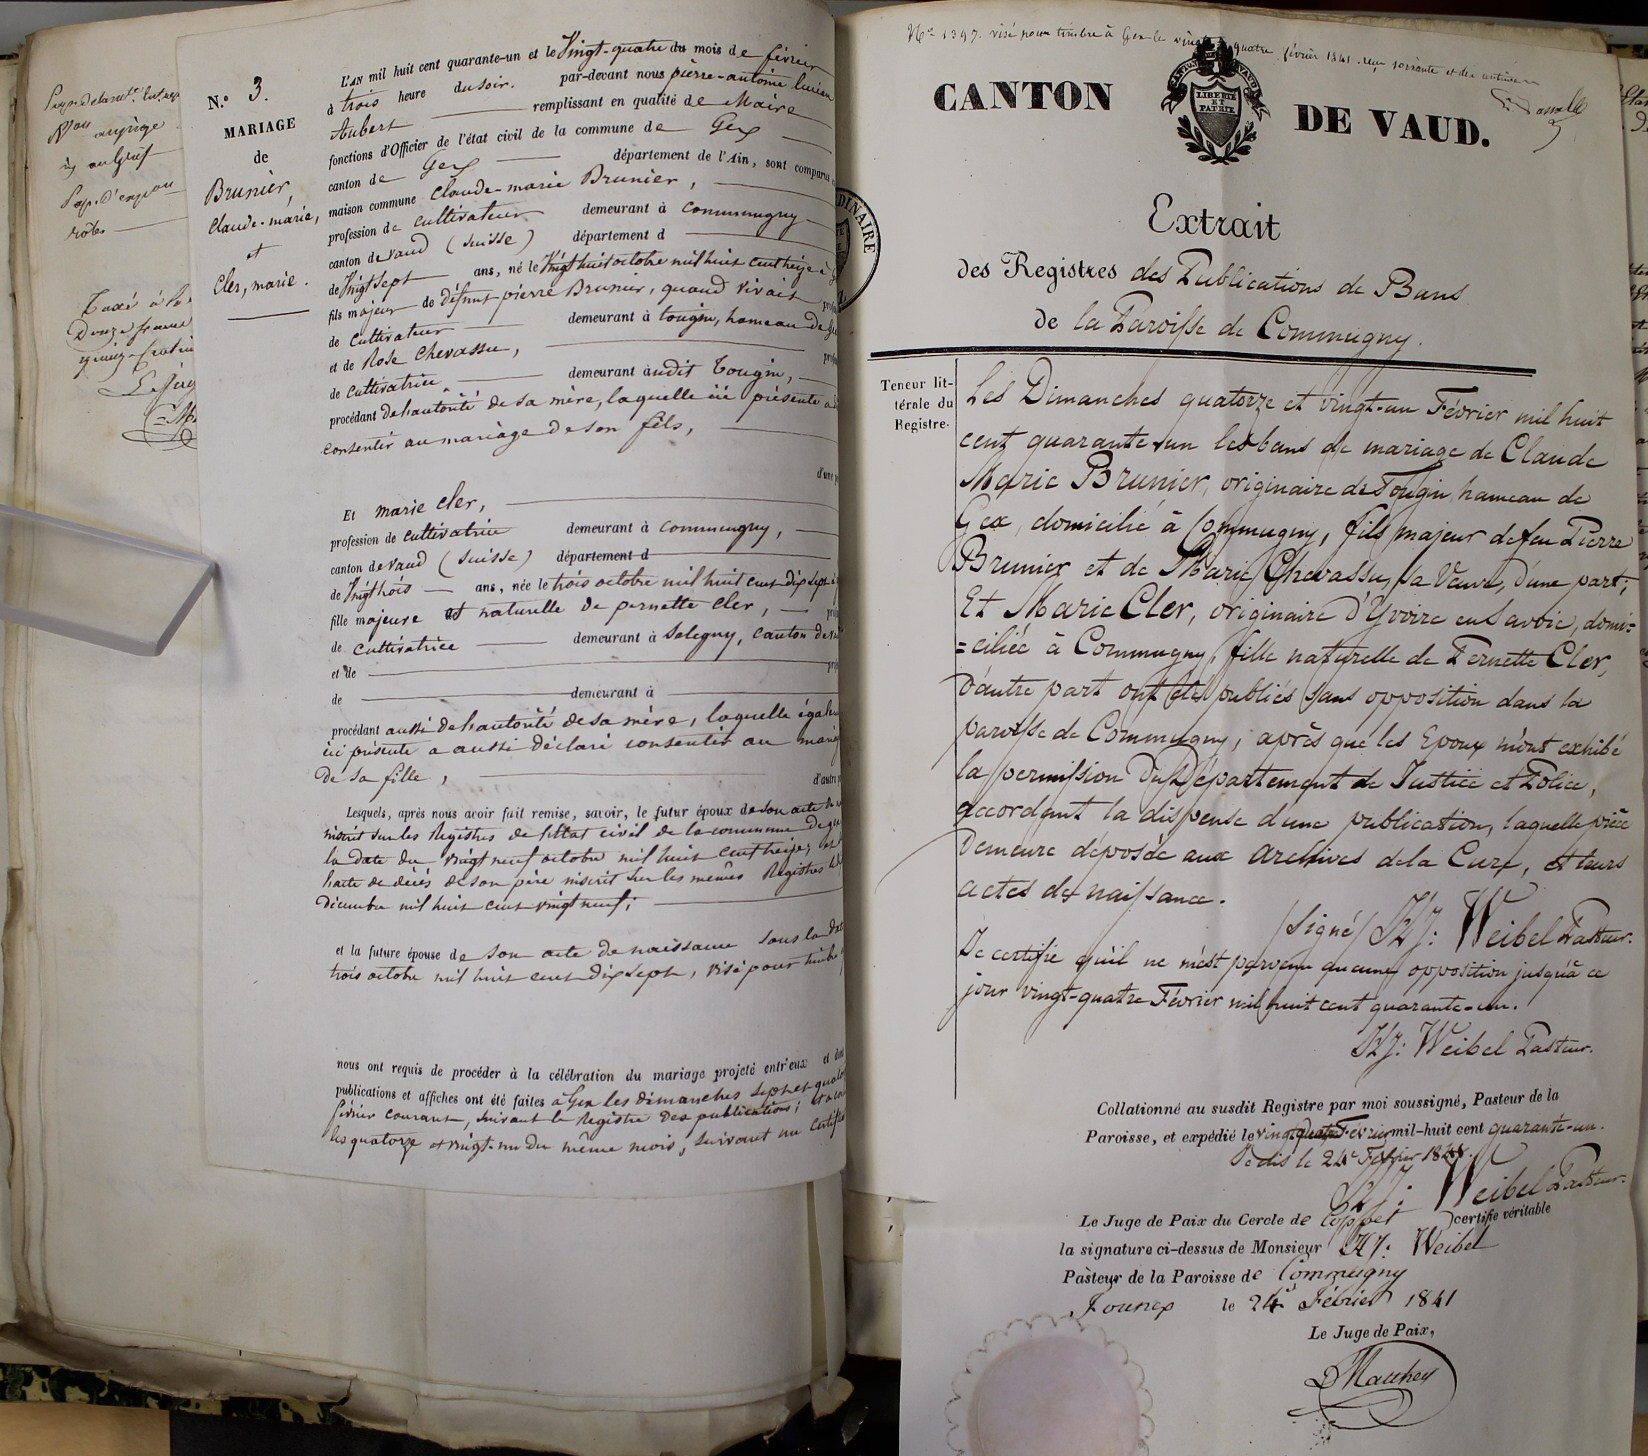 N.º 3.
MARIAGE
de
Brunier,
Claude-marie,
et
Cler, marie.
L'AN mil huit cent quarante-un et le Vingt-quatre du mois de février
à trois heure du soir. par-devant nous pierre-antoine lucien
Aubert remplissant en qualité de Maire
fonctions d'Officier de l'état civil de la commune de Gex
canton de Gex département de l'Ain, sont comparus
maison commune Claude-marie Brunier,
profession de cultivateur demeurant à Commugny
canton de vaud (suisse) département d
de Vingt sept ans, né le Vingt huit octobre mil huit cent treize à
fils majeur de défunt pierre Brunier, quand vivait
de cultivateur demeurant à tougin, hameau de
et de Rose Chevassu,
de cultivatrice demeurant audit Tougin,
procédant de l'autorité de sa mère, laquelle ici présente a
consentir au mariage de son fils,
d'une
Et marie cler,
profession de cultivatrice demeurant à commugny,
canton de vaud (suisse) département d
de Vingt trois ans, née le trois octobre mil huit cent dix sept à
fille majeure et naturelle de pernette cler,
de cultivatrice demeurant à Saligny, canton de
et de
de demeurant à
procédant aussi de l'autorité de sa mère, laquelle
ici présente a aussi déclaré consentir au
de sa fille,
d'autre
Lesquels, après nous avoir fait remise, savoir, le futur époux de son acte de
inscrit sur les Registres de l'état civil de la commune de
la date du vingt neuf octobre mil huit cent treize, et
l'acte de décès de son père inscrit sur les mêmes Registres
décembre mil huit cent vingt neuf;
et la future épouse de son acte de naissance sous la
trois octobre mil huit cent dix sept, visé pour timbre
nous ont requis de procéder à la célébration du mariage projeté entr'eux et
publications et affiches ont été faites à Gex les dimanches sept et
février courant, suivant le Registre des publications; et à
les quatorze et vingt-un du même mois, suivant un
Nº 1397. visé pour timbre à Gex le vingt quatre février 1841. reçu soixante et dix centimes
CANTON DE VAUD.
LIBERTÉ
ET
PATRIE
Extrait
des Registres des Publications de Bans
de la Paroisse de Commugny.
Teneur lit-
térale du
Registre.
Les Dimanches quatorze et vingt-un Février mil huit
cent quarante-un les bans de mariage de Claude
Marie Brunier, originaire de Tougin, hameau de
Gex, domicilié à Commugny, fils majeur de feu Pierre
Brunier et de Marie Chevassu, sa Veuve, d'une part;
Et Marie Cler, originaire d'Yvoire en Savoie, domi-
=ciliée à Commugny, fille naturelle de Pernette Cler,
d'autre part ont été publiés sans opposition dans la
paroisse de Commugny, après que les Epoux m'ont exhibé
la permission du Département de Justice et Police,
accordant la dispense d'une publication, laquelle pièce
demeure déposée aux archives de la Cure, et leurs
actes de naissance.
(signé) Weibel Pasteur.
Je certifie qu'il ne m'est parvenu aucune opposition jusqu'à ce
jour vingt-quatre Février mil huit cent quarante-un.
Weibel Pasteur.
Collationné au susdit Registre par moi soussigné, Pasteur de la
Paroisse, et expédié le vingt quatre Février mil-huit cent quarante-un.
Je dis le 24e Février 1841.
Weibel Pasteur.
Le Juge de Paix du Cercle de Coppet certifie véritable
la signature ci-dessus de Monsieur Weibel
Pasteur de la Paroisse de Commugny
Founex le 24 Février 1841
Le Juge de Paix,